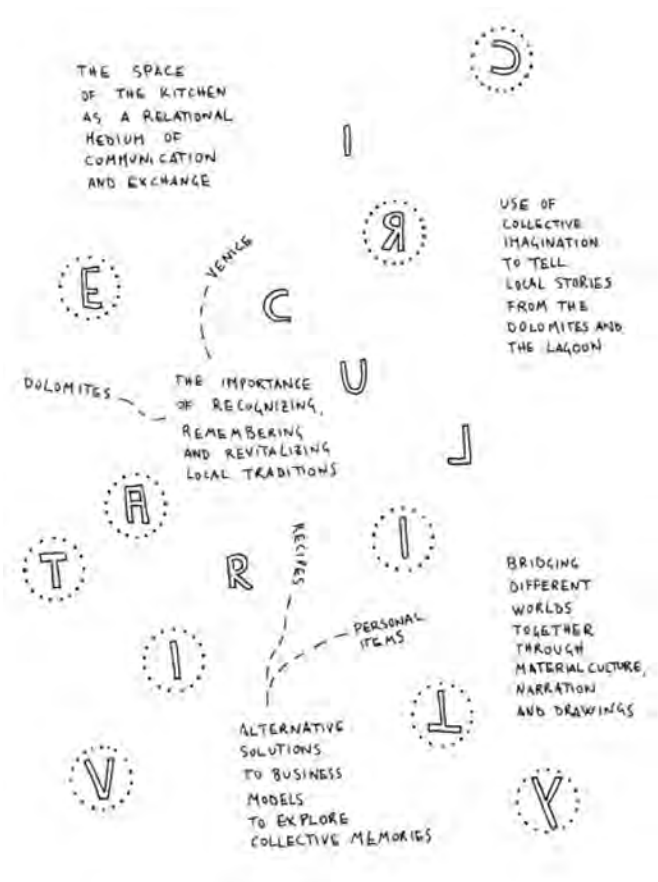 THE SPACE
OF THE KITCHEN
AS A RELATIONAL
MEDIUM OF
COMMUNICATION
AND EXCHANGE
C
I
R
USE OF
COLLECTIVE
IMAGINATION
TO TELL
LOCAL STORIES
FROM THE
DOLOMITES AND
THE LAGOON
E
VENICE
C
DOLOMITES
THE IMPORTANCE
OF RECOGNIZING,
REMEMBERING
AND REVITALIZING
LOCAL TRADITIONS
U
L
A
I
T
R
RECIPES
PERSONAL
ITEMS
BRIDGING
DIFFERENT
WORLDS
TOGETHER
THROUGH
MATERIAL CULTURE,
NARRATION
AND DRAWINGS
I
T
ALTERNATIVE
SOLUTIONS
TO BUSINESS
MODELS
TO EXPLORE
COLLECTIVE MEMORIES
V
Y